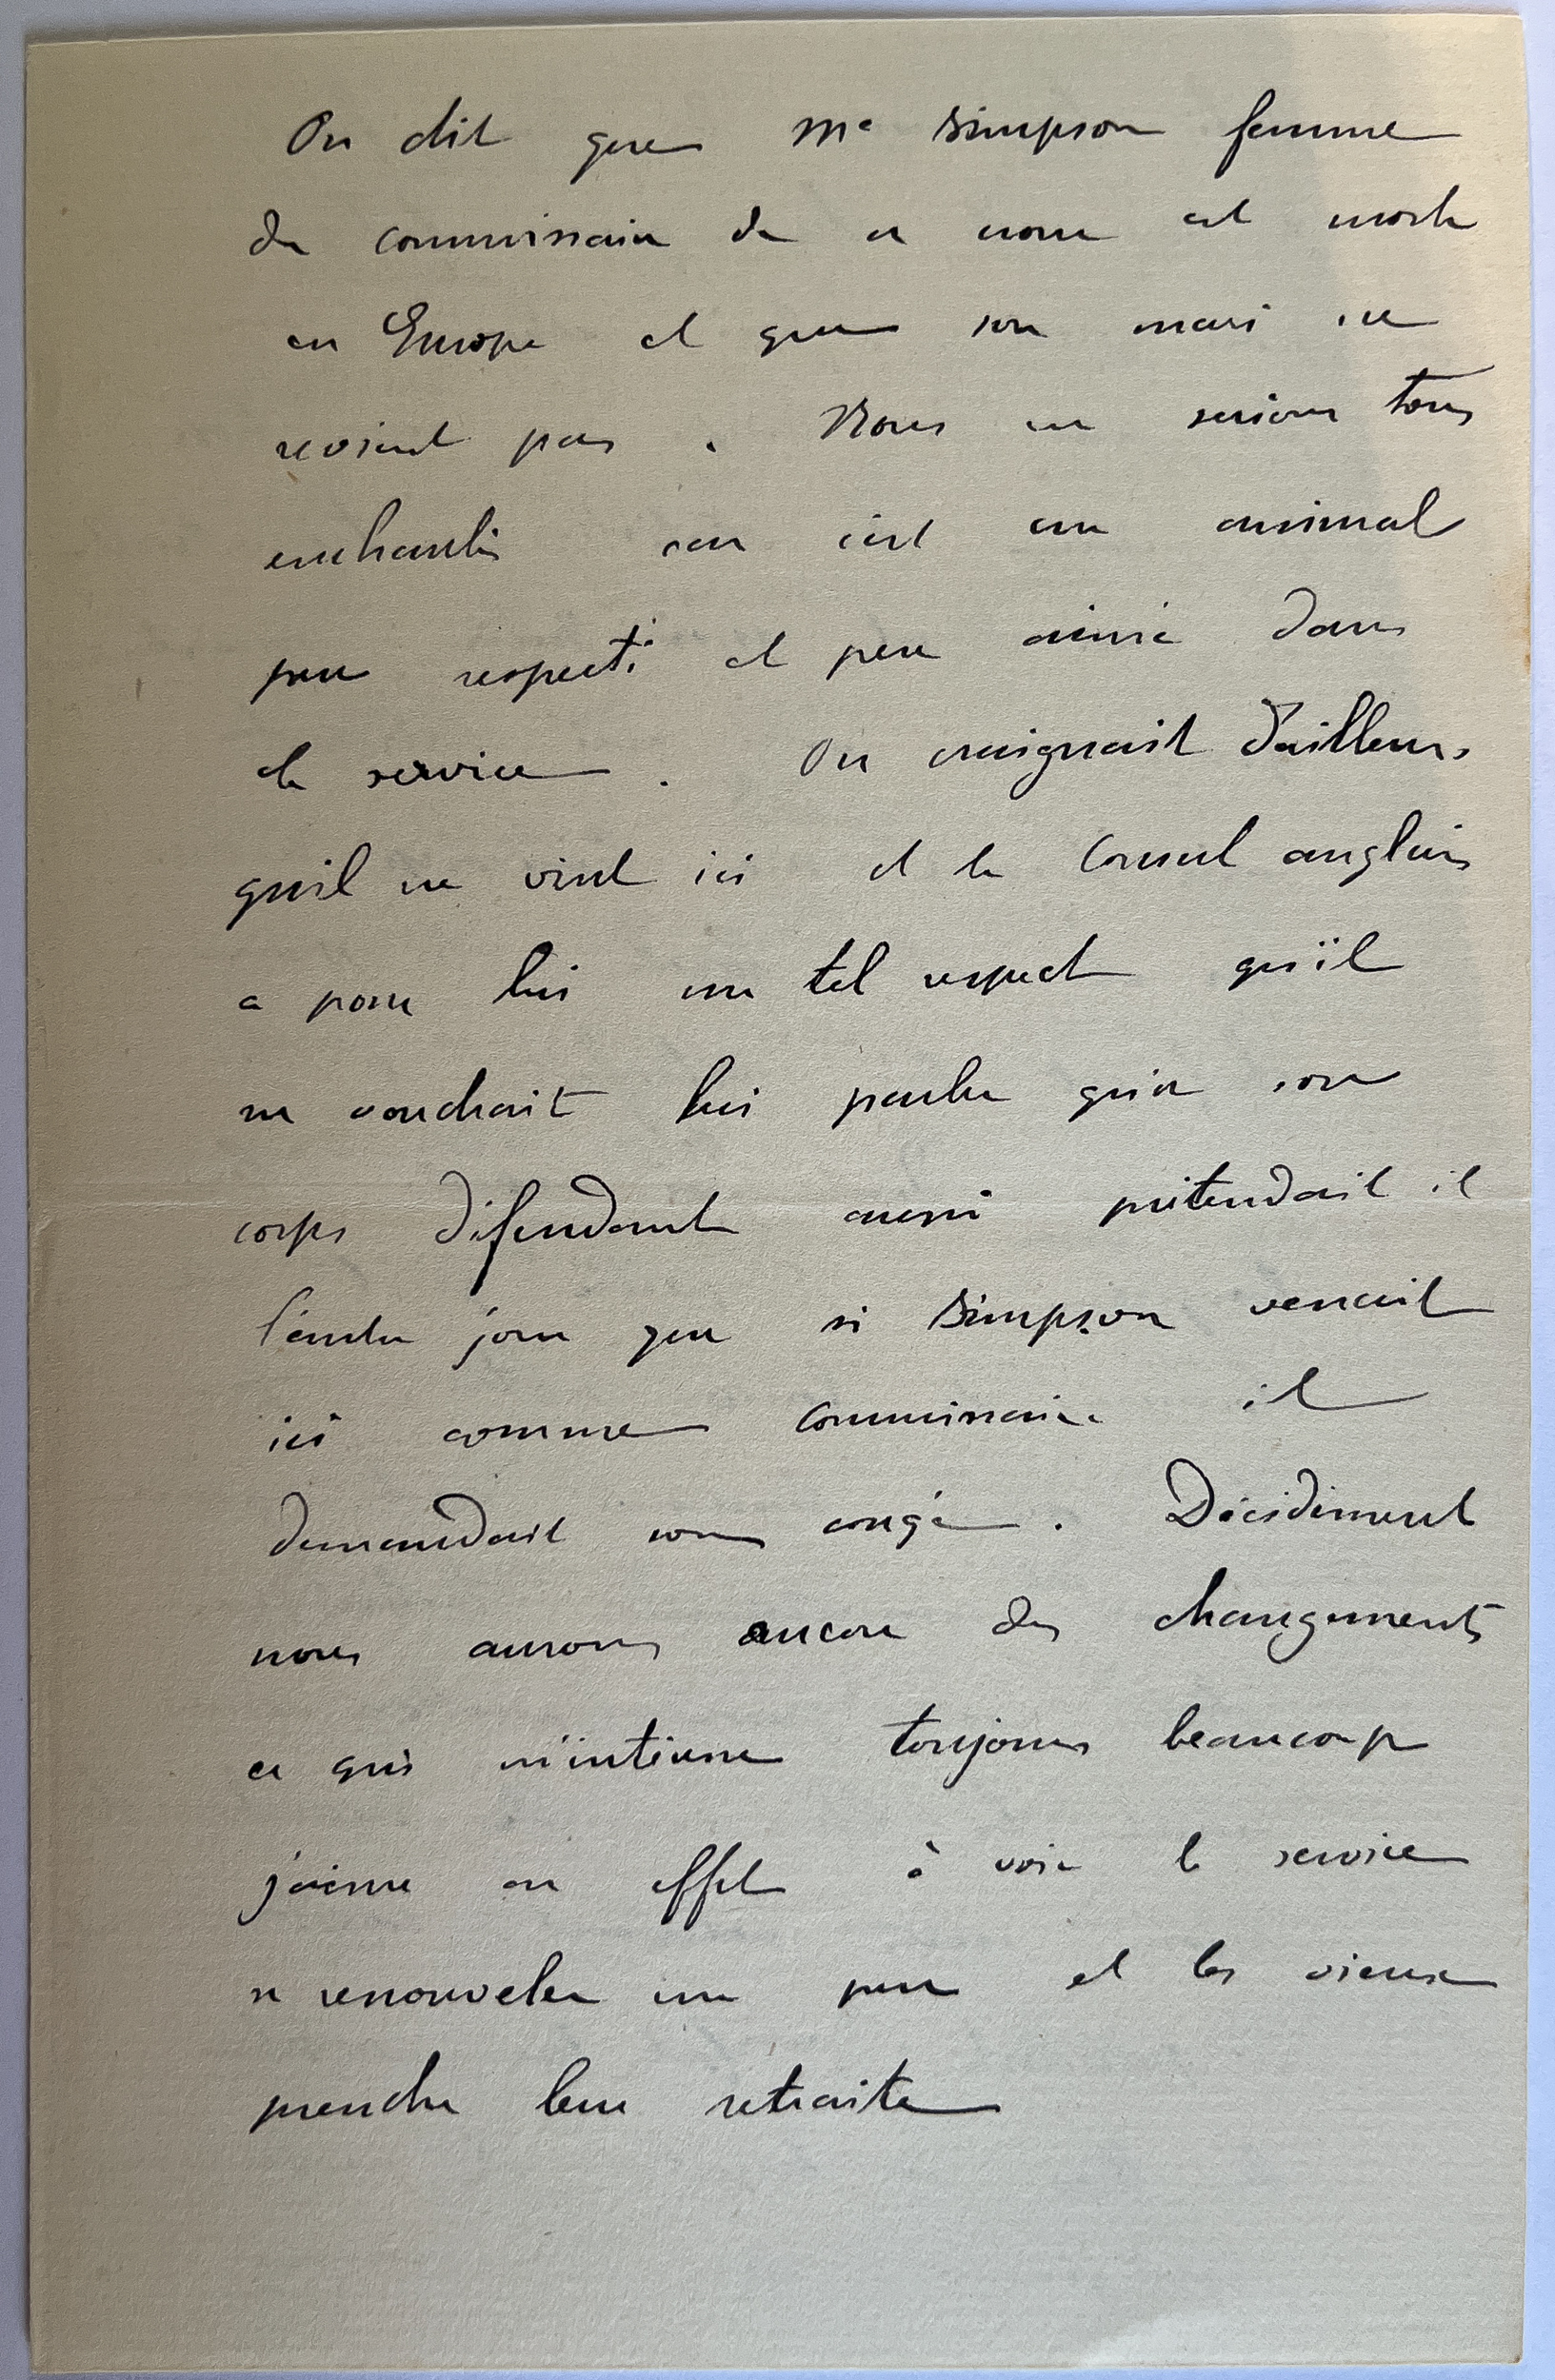 On dit que Me Simpson femme
du commissaire de ce nom est morte
en Europe et que son mari ne
revient pas. Nous en serions tous
enchantés car c'est un animal
peu respecté et peu aimé dans
le service. On craignait d'ailleurs
qu'il ne vint ici et le Consul anglais
a pour lui un tel respect qu'il
ne voudrait lui parler qu'à son
corps défendant aussi prétendait il
l'autre jour que si Simpson venait
ici comme commissaire il
demandait son congé. Décidément
nous aurons encore des changements
ce qui m'intéresse toujours beaucoup
j'aime en effet à voir le service
se renouveler un peu et les vieux
prendre leur retraite